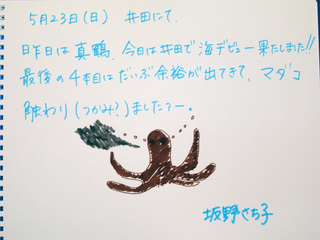 5月23日(日) 井田にて.
昨日は真鶴、今日は井田で海デビュー果たしました!!
最後の4本目はだいぶ余裕が出てきて、マダコ
触わり(つかみ?)ましたァー。
坂野さち子